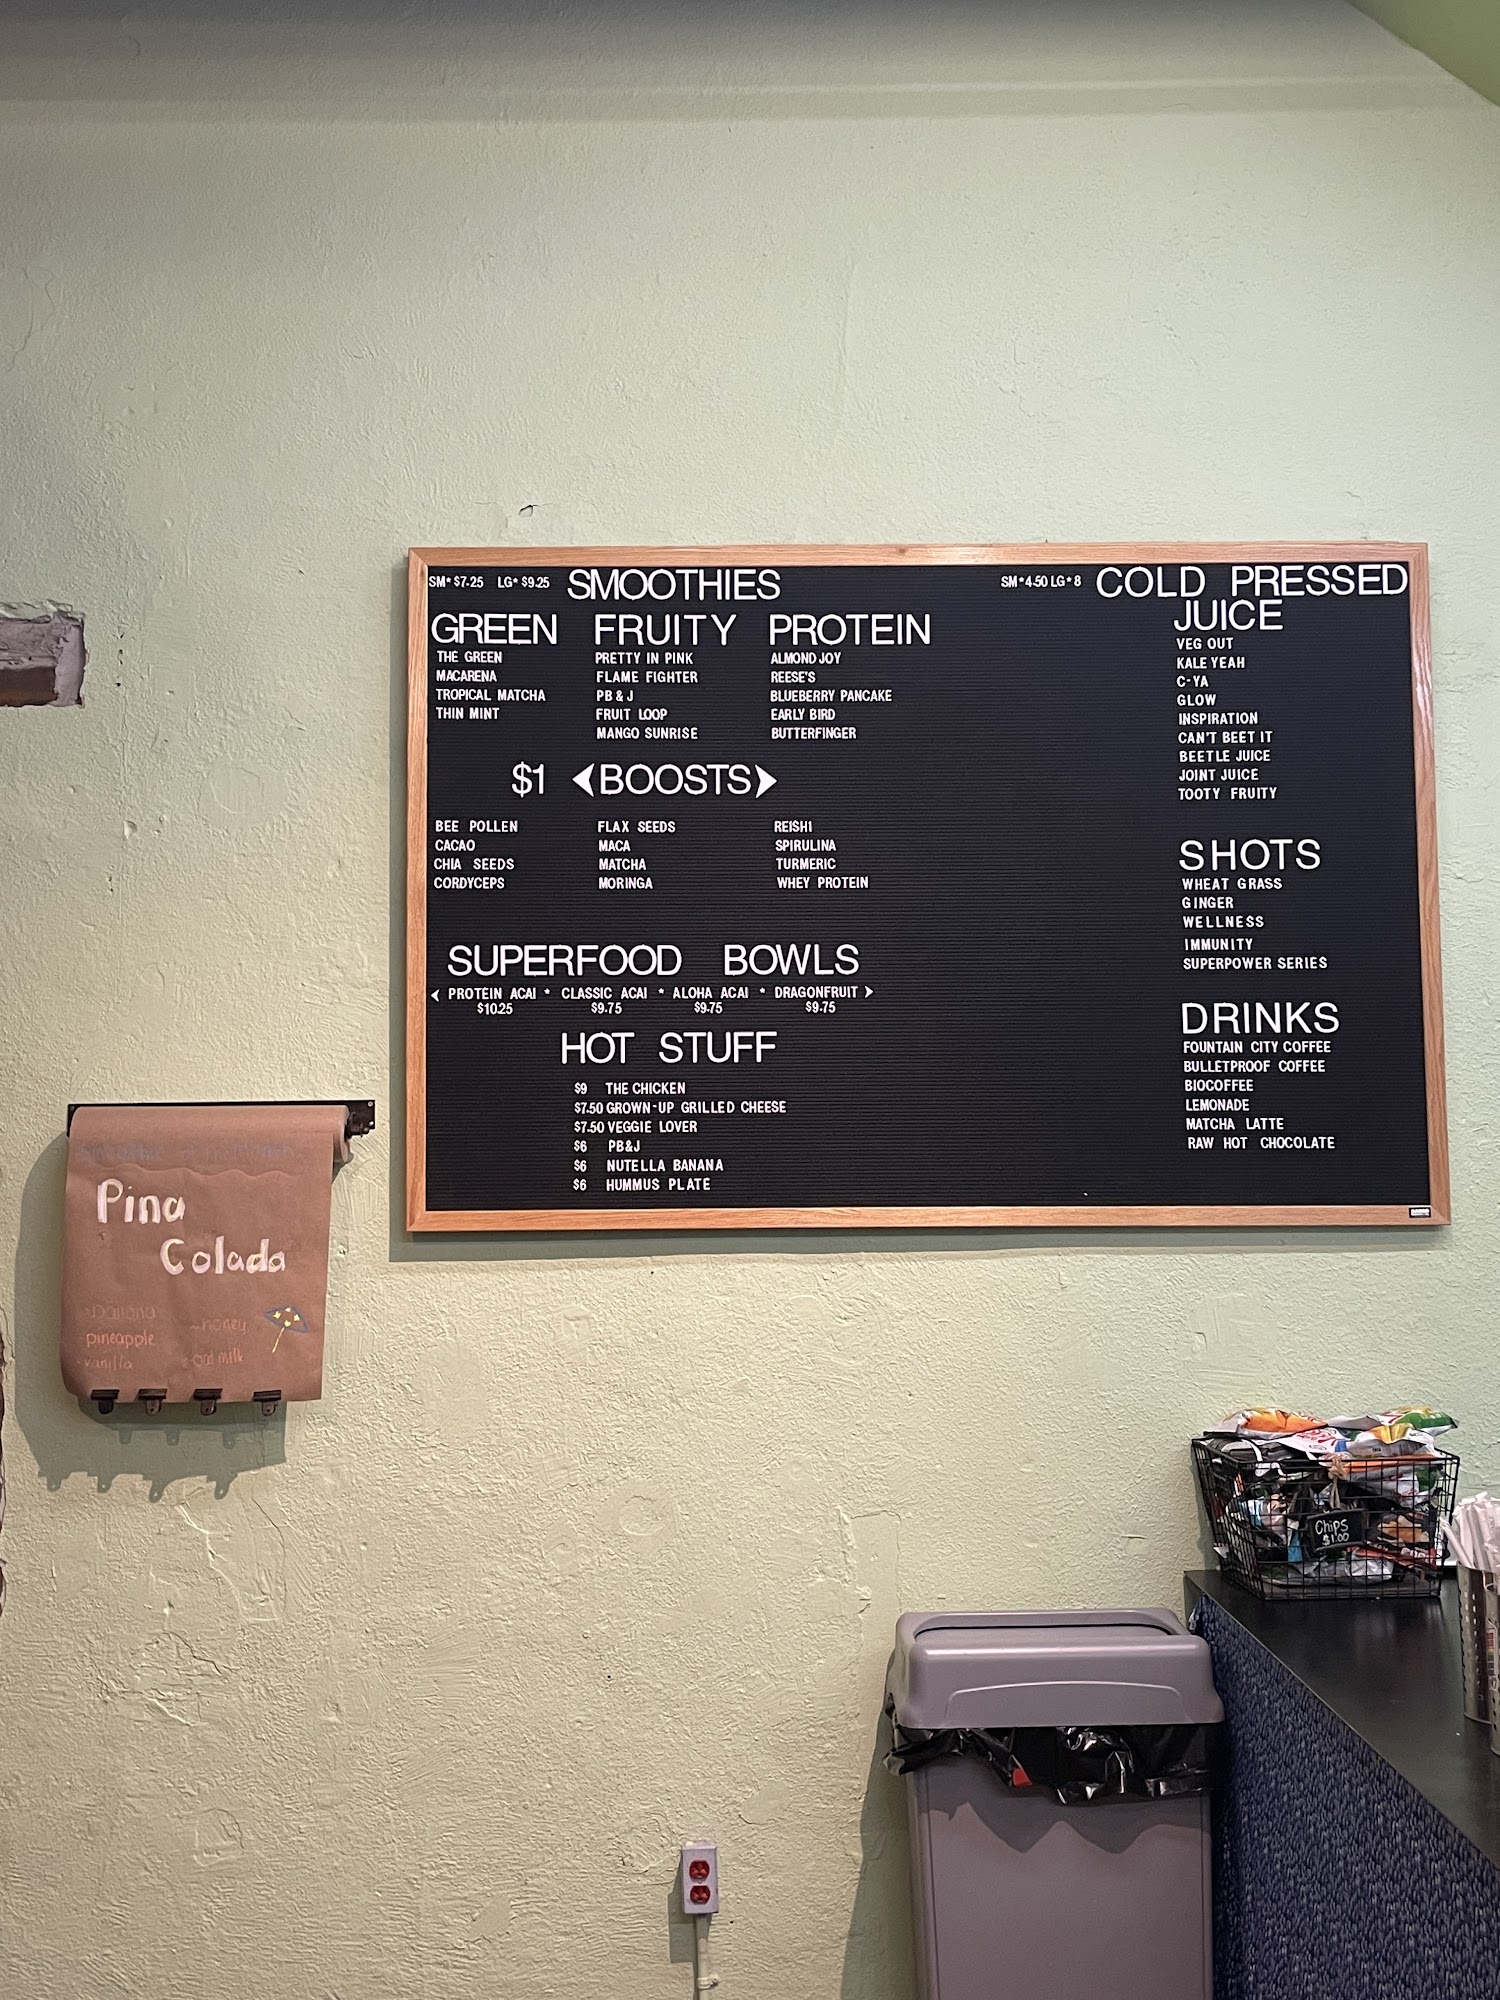 SM* $7.25 LG* $9.25 SMOOTHIES
GREEN FRUITY PROTEIN
THE GREEN
MACARENA
TROPICAL MATCHA
THIN MINT
PRETTY IN PINK
FLAME FIGHTER
PB & J
FRUIT LOOP
MANGO SUNRISE
ALMOND JOY
REESE'S
BLUEBERRY PANCAKE
EARLY BIRD
BUTTERFINGER
$1 <BOOSTS>
BEE POLLEN
CACAO
CHIA SEEDS
CORDYCEPS
FLAX SEEDS
MACA
MATCHA
MORINGA
REISHI
SPIRULINA
TURMERIC
WHEY PROTEIN
SUPERFOOD BOWLS
< PROTEIN ACAI * CLASSIC ACAI * ALOHA ACAI * DRAGONFRUIT >
$10.25 $9.75 $9.75 $9.75
HOT STUFF
$9 THE CHICKEN
$7.50 GROWN-UP GRILLED CHEESE
$7.50 VEGGIE LOVER
$6 PB&J
$6 NUTELLA BANANA
$6 HUMMUS PLATE
SM*4.50 LG*8 COLD PRESSED
JUICE
VEG OUT
KALE YEAH
C-YA
GLOW
INSPIRATION
CAN'T BEET IT
BEETLE JUICE
JOINT JUICE
TOOTY FRUITY
SHOTS
WHEAT GRASS
GINGER
WELLNESS
IMMUNITY
SUPERPOWER SERIES
DRINKS
FOUNTAIN CITY COFFEE
BULLETPROOF COFFEE
BIOCOFFEE
LEMONADE
MATCHA LATTE
RAW HOT CHOCOLATE
Pina
Colada
-banana
pineapple
-vanilla
-honey
-oat milk
Chips
$1.00